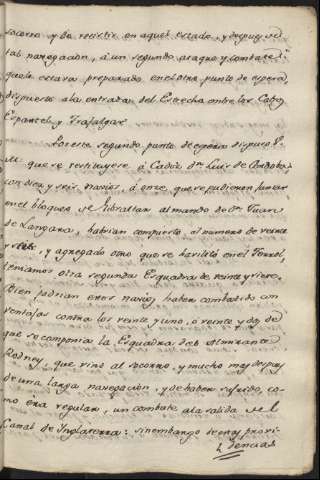 socorro, y de resistir en aquel estado, y despues de
tal navegacion, á un segundo ataque y combate
que le estava preparado en el otro punto de espera,
dispuesto a la entrada del Estrecho entre los Cabos
Espartel y Trafalgar.
Por este segundo punto de espera dispuso V.
M. que se restituyese á Cadiz dn. Luis de Cordova
con diez y seis navios, á once, que se pudieron juntar
en el bloqueo de Gibraltar al mando de dn. Juan
de Langara, habrian compuesto el numero de veinte
y siete, y agregado otro que se havilitó en el Ferrol,
teniamos otra segunda Esquadra de veinte y
Bien podrian estos navios haber combatido con
ventajas contra los veinte y uno, ó veinte y dos de
que se componia la Esquadra del Almirante
Rodney, que vino al socorro, y mucho mas despues
de una larga navegacion, y de haber sufrido, co-
mo era regular, un combate a la salida del
Canal de Inglaterra: sin embargo de estas provi-
dencias